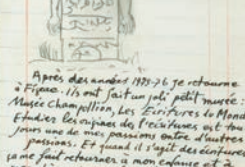 Après des années 1975-76 je retourne
à Figeac. ils ont fait un joli petit musée:
Musée Champollion, Les Écritures du Monde
Etudier les origines de l'écritures est tou
jours une de mes passions entre d'autres
passions. Et quand il s'agit des écritures
ça me fait retourner à mon enfance et à